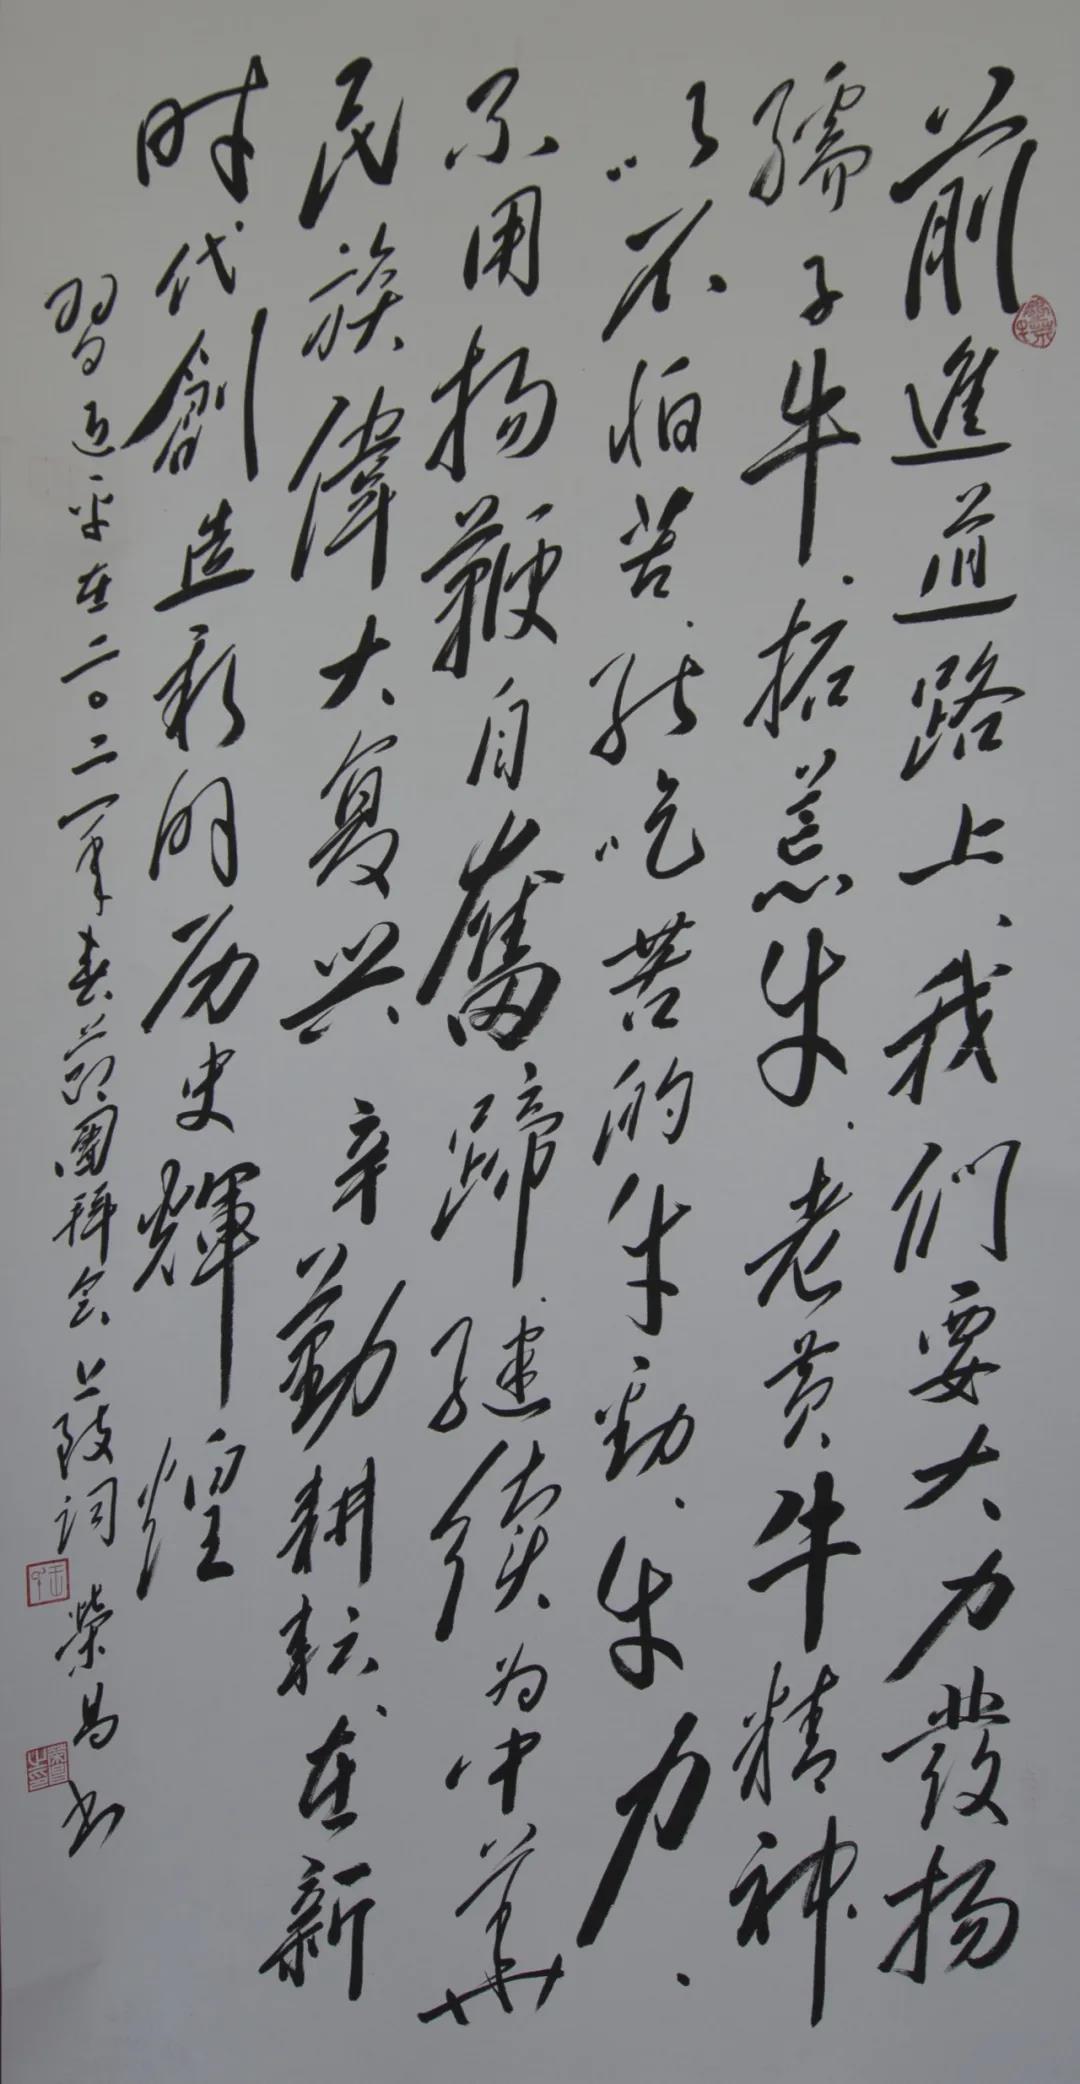 前進道路上、我们要大力發扬
孺子牛、拓荒牛、老黄牛精神、
以不怕苦、能吃苦的牛劲、牛力、
不用扬鞭自奮蹄、继续为中華
民族偉大复兴辛勤耕耘、在新
时代創造新的历史輝煌
習近平在二〇二一年春节團拜会上致词 榮昌书